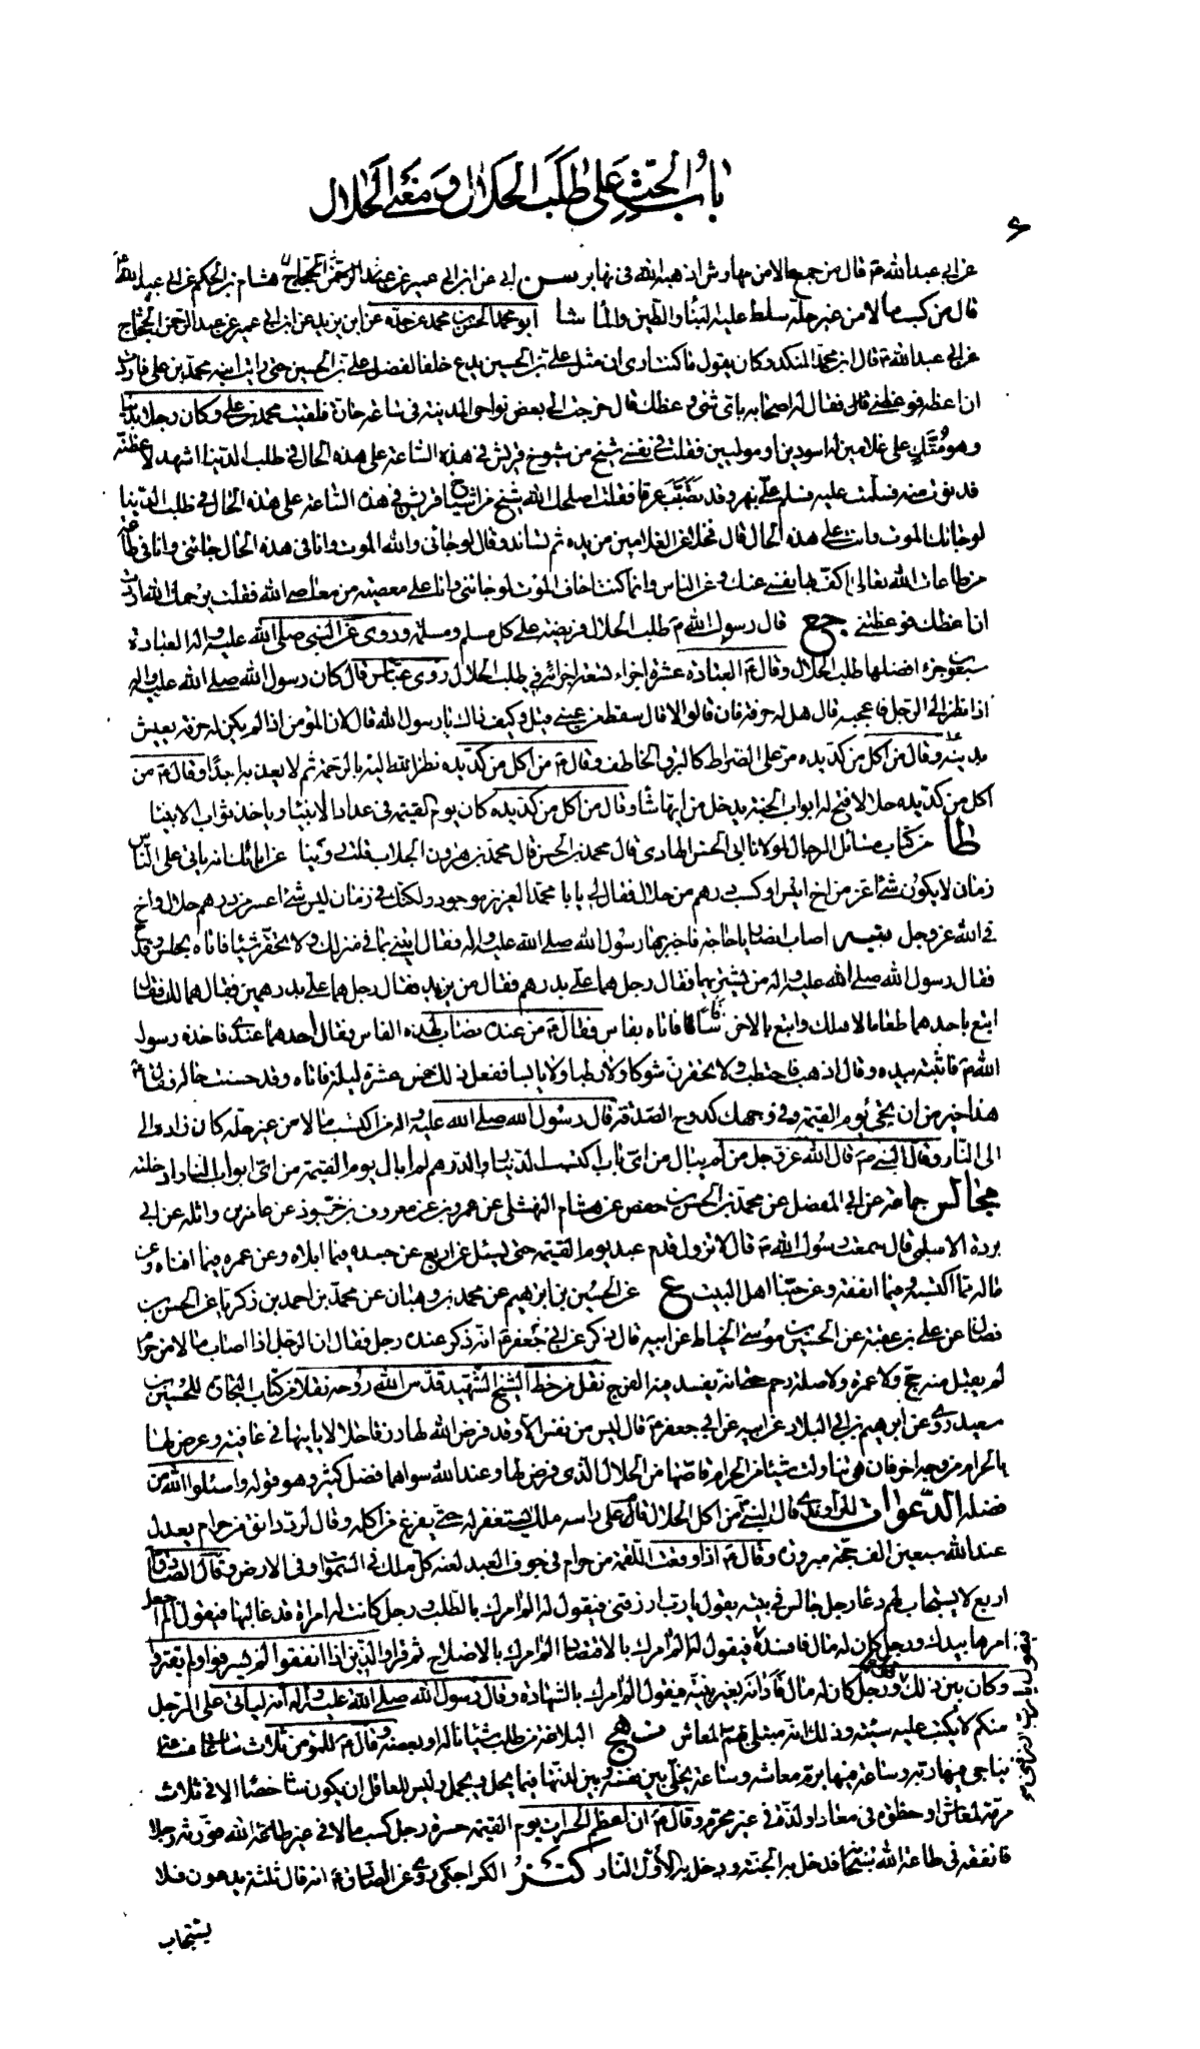 باب الحث على طلب الحلال ومعنى الحلال
٤
عن ابي عبد الله ع قال من جمع مالا من مهاوش اذهبه الله في نهابر سن ابي عن ابن ابي عمير عن عبد الرحمن الحجاج هشام بن الحكم عن ابي عبد الله ع
قال من كسب مالا من غير حله سلط عليه البناء والطين والماء شا ابو محمد الحسن بن محمد عن جده عن ابن يزيد عن ابن ابي عمير عن عبد الرحمن الحجاج
عن ابي عبد الله ع قال ان محمد المنكدر كان يقول ما كنت ارى ان مثل علي بن الحسين يدع خلفا لفضل علي بن الحسين حتى رايت ابنه محمد بن علي فاردت
ان اعظه فوعظني فقال له اصحابه باي شئ وعظك قال خرجت الى بعض نواحي المدينة في ساعة حارة فلقيت محمد بن علي وكان رجلا بدينا
وهو متكئ على غلامين له اسودين او موليين فقلت في نفسي شيخ من شيوخ قريش في هذه الساعة على هذه الحال في طلب الدنيا اشهد لاعظنه
فدنوت منه فسلمت عليه فسلم علي بنهر وقد تصبب عرقا فقلت اصلحك الله شيخ من اشياخ قريش في هذه الساعة على هذه الحال في طلب الدنيا
لو جائك الموت وانت على هذه الحال قال فخلا عن الغلامين من يده ثم تساند وقال لو جائني والله الموت وانا في هذه الحال جائني وانا في طاعة
من طاعات الله تعالى اكف بها نفسي عنك وعن الناس وانما كنت اخاف الموت لو جائني وانا على معصية من معاصي الله فقلت يرحمك الله اردت
ان اعظك فوعظتني جع قال رسول الله ص طلب الحلال فريضة على كل مسلم ومسلمة وروى عن النبي صلى الله عليه واله العبادة
سبعون جزء افضلها طلب الحلال وقال ع العبادة عشرة اجزاء تسعة اجزاء في طلب الحلال روى عباس قال كان رسول الله صلى الله عليه واله
اذا نظر الى الرجل فاعجبه قال هل له حرفة فان قالوا لا قال سقط من عيني قيل وكيف ذاك يا رسول الله قال لان المؤمن اذا لم يكن له حرفة يعيش
بدينه وقال من اكل من كد يده مر على الصراط كالبرق الخاطف وقال ع من اكل من كد يده نظر الله اليه بالرحمة ثم لا يعذبه ابدا وقال ع من
اكل من كد يده حلالا فتح له ابواب الجنة يدخل من ايها شاء وقال من اكل من كد يده كان يوم القيمة في عداد الانبياء وياخذ ثواب الانبياء
طا من كتاب مسائل الرجال لمولانا ابي الحسن الهادي قال محمد بن الحسن قال محمد بن هرون الجلاب قلت روينا عن ابائك انه ياتي على الناس
زمان لا يكون شئ اعز من اخ انيس او كسب درهم من حلال فقال لي يا با محمد ان العزيز موجود ولكنك في زمان ليس شئ اعسر من درهم حلال واخ
في الله عز وجل اصاب انصاريا حاجة فاخبر بها رسول الله صلى الله عليه واله فقال ايتني بما في منزلك ولا تحقر شيئا فاتاه بحلس وقدح
فقال رسول الله صلى الله عليه واله من يشتريهما فقال رجل هما علي بدرهم فقال من يزيد فقال رجل هما علي بدرهمين فقال هما لك فقال
ابتع باحدهما طعاما لاهلك وابتع بالاخر فاسا فاتاه بفاس فقال ع من عنده نصاب لهذه الفاس فقال احدهم عندي فاخذه رسول
الله ص فاثبته بيده وقال اذهب فاحتطب ولا تحقرن شوكا ولا رطبا ولا يابسا ففعل ذلك خمس عشرة ليلة فاتاه وقد حسنت حاله فقال ع
هذا خير من ان تجئ يوم القيمة وفي وجهك كدوح الصدقة قال رسول الله صلى الله عليه واله من اكتسب مالا من غير حله كان زاده الى
الى النار وقال النبي ص قال الله عز وجل من لم يبال من اي باب اكتسب الدينار والدرهم لم ابال يوم القيمة من اي ابواب النار ادخلته
مجالس جماعة عن ابي المفضل عن محمد بن الحسن بن حفص عن هشام النهشلي عن عمرو بن عن معروف بن خربوذ عن عامر بن واثلة عن ابي
بردة الاسلمي قال سمعت رسول الله ص قال لا تزول قدم عبد يوم القيمة حتى يسئل عن اربع عن جسده فيما ابلاه وعن عمره فيما افناه وعن
ماله مما اكتسبه وفيما انفقه وعن حبنا اهل البيت ع عن الحسين بن ابرهيم عن محمد بن وهبان عن محمد بن احمد بن زكريا عن الحسن بن
فضال عن علي بن عقبة عن الحسين بن موسى الخياط عن ابيه قال ذكر عن ابي جعفر ع انه ذكر عنده رجل فقال ان الرجل اذا اصاب مالا من حرام
لم يقبل منه حج ولا عمرة ولا صلة رحم حتى انه يفسد منه الفرج نقل من خط الشيخ الشهيد قدس الله روحه نقلا من كتاب التجارة للحسين بن
سعيد روى عن ابرهيم بن ابي البلاد عن ابيه عن ابي جعفر ع قال ليس من نفس الا وقد فرض الله لها رزقا حلالا ياتيها في عافية وعرض لها
بالحرام من وجه اخر فان هي تناولت شيئا من الحرام قاصها من الحلال الذي فرض لها وعند الله سواهما فضل كثير وهو قوله واسئلوا الله من
فضله الدعوات للراوندي قال النبي ص من اكل الحلال قام على راسه ملك يستغفر له حتى يفرغ من اكله وقال لرد دانق من حرام يعدل
عند الله سبعين الف حجة مبرورة وقال ع اذا وقعت اللقمة من حرام في جوف العبد لعنه كل ملك في السموات وفي الارض وقال الصادق
اربع لا يستجاب لهم دعاء رجل جالس في بيته يقول يا رب ارزقني فيقول له الم امرك بالطلب ورجل كانت له امراة قدعا عليها فيقول الم اجعل
امرها بيدك ورجل كان له مال فافسده فيقول له الم امرك بالاقتصاد الم امرك بالاصلاح ثم قرا والذين اذا انفقوا لم يسرفوا ولم يقتروا
وكان بين ذلك قواما ورجل كان له مال فادانه بغير بينة فيقول الم امرك بالشهادة وقال رسول الله صلى الله عليه واله انه لياتي على الرجل
منكم لا يكتب عليه سيئة وذلك انه مبتلى بهم المعاش نهج البلاغة من طلب شيئا ناله او بعضه وقال ع للمؤمن ثلاث ساعات فساعة
يناجي فيها ربه وساعة فيها يرم معاشه وساعة يخلي بين نفسه وبين لذتها فيما يحل ويجمل وليس للعاقل ان يكون شاخصا الا في ثلاث
مرمة لمعاش او حظوة في معاد او لذة في غير محرم وقال ع ان اعظم الحسرات يوم القيمة حسرة رجل كسب مالا في غير طاعة الله فورثه رجلا
فانفقه في طاعة الله سبحانه فدخل به الجنة ودخل به الاول النار كنز الكراجكي روى عن الصادق ع انه قال ثلثة يدعون فلا
يستجاب